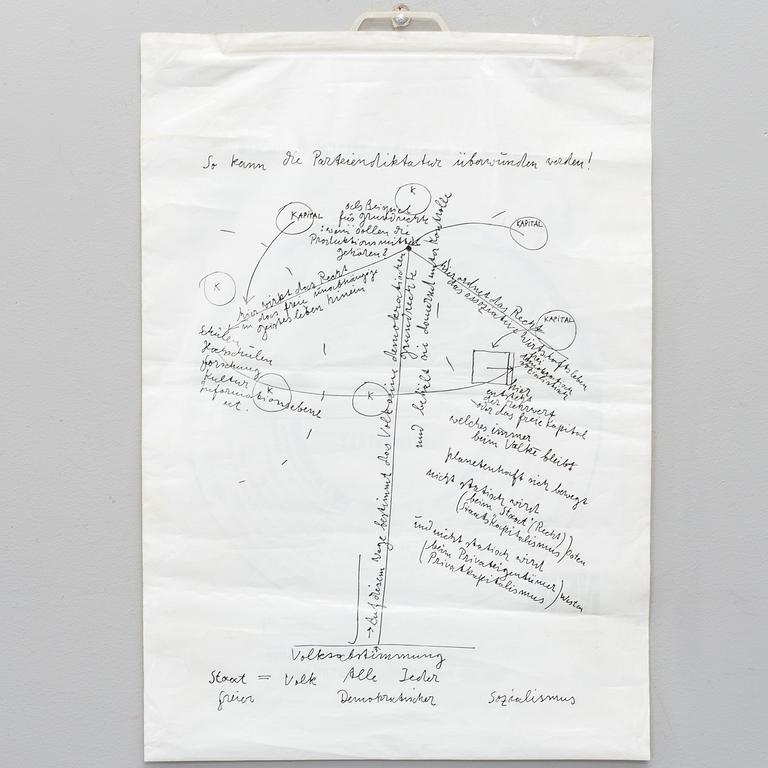 So kann die Parteiendiktatur überwunden werden!
K
KAPITAL
als Beispiel
für grundrechte
: wem sollen die
Produktionsmittel
gehören?
KAPITAL
K
hier wirkt das Recht
in das freie unabhängige
geistesleben hinein
Schulen
Hochschulen
forschung
Kultur
informationsebene
K
K
Auf diesem Wege bestimmt das Volk seine demokratischen
grundrechte
und behält sie dauernd unter Kontrolle
hier ordnet das Recht
das assoziative Wirtschaftsleben
KAPITAL
frei
demokratisch
sozialistisch
hier
entsteht
der Mehrwert
oder das freie Kapital
welches immer
beim Volke bleibt
planetenhaft sich bewegt
nicht statisch wird
(beim Staat (Recht)
(Staatskapitalismus) Osten
und nicht statisch wird
(beim Privateigentümer)
(Privatkapitalismus) Westen
Volksabstimmung
Staat = Volk Alle Jeder
freier Demokratischer Sozialismus